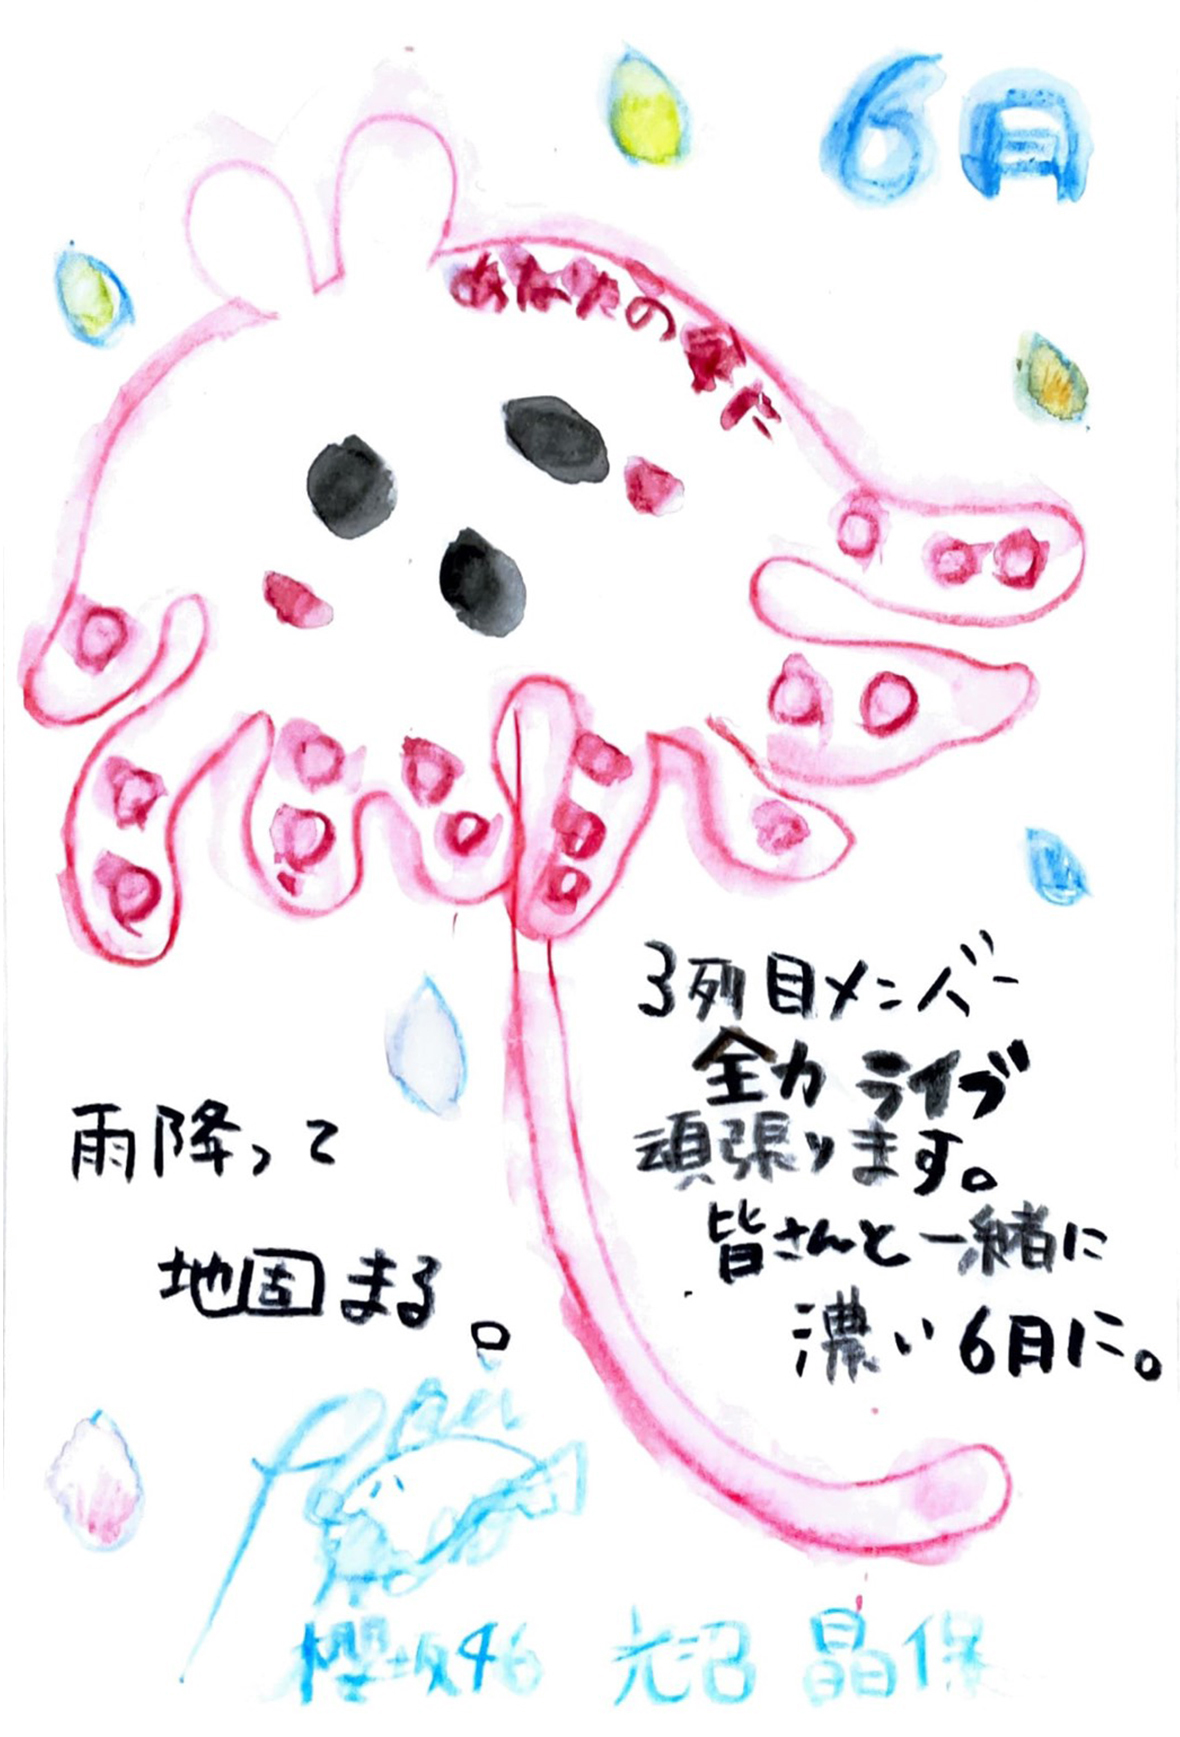 6月
あなたの
3列目メンバー
全力ライブ
頑張ります。
皆さんと一緒に
濃い6月に。
雨降って
地固まる。
櫻坂46 大沼 晶保